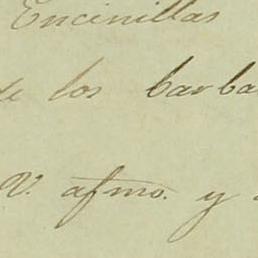 Encinillas
de los barba
V. afmo. y